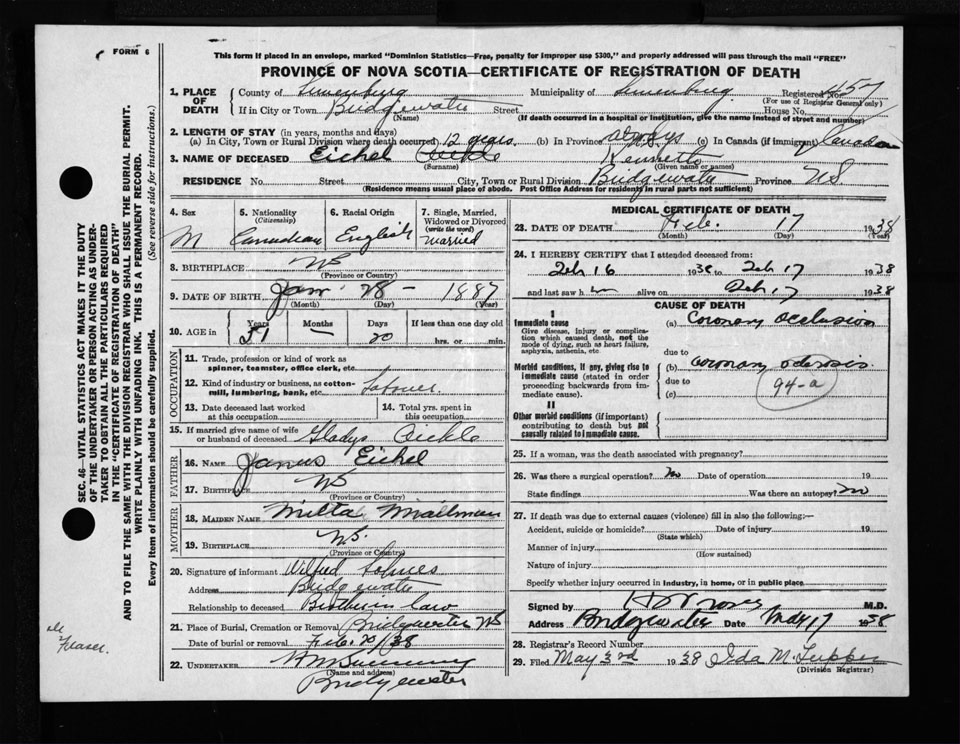 FORM 6
This form if placed in an envelope, marked "Dominion Statistics—Free, penalty for improper use $300," and properly addressed will pass through the mail "FREE"
PROVINCE OF NOVA SCOTIA—CERTIFICATE OF REGISTRATION OF DEATH
1. PLACE OF DEATH County of Lunenburg Municipality of Lunenburg Registered No. 457
(For use of Registrar General only)
If in City or Town Bridgewater Street House No.
(Name) (If death occurred in a hospital or institution, give the name instead of street and number)
2. LENGTH OF STAY (in years, months and days)
(a) In City, Town or Rural Division where death occurred 12 years. (b) In Province always (c) In Canada (if immigrant) Canadian
3. NAME OF DECEASED Eichel Kenneth
(Surname) (Given name or names)
RESIDENCE No. Street City, Town or Rural Division Bridgewater Province N.S.
(Residence means usual place of abode. Post Office Address for residents in rural parts not sufficient)
4. Sex M
5. Nationality (Citizenship) Canadian
6. Racial Origin English
7. Single, Married, Widowed or Divorced (write the word) Married
8. BIRTHPLACE NS
(Province or Country)
9. DATE OF BIRTH Jan 28 – 1887
(Month) (Day) (Year)
10. AGE in Years 51 Months — Days 20 If less than one day old hrs. or min.
OCCUPATION
11. Trade, profession or kind of work as spinner, teamster, office clerk, etc.
12. Kind of industry or business, as cotton-mill, lumbering, bank, etc. Labourer.
13. Date deceased last worked at this occupation
14. Total yrs. spent in this occupation
15. If married give name of wife or husband of deceased Gladys Eickle
FATHER
16. NAME James Eichel
17. BIRTHPLACE NS
(Province or Country)
MOTHER
18. MAIDEN NAME Mailman
19. BIRTHPLACE N.S.
(Province or Country)
20. Signature of informant Wilfred
Address Bridgewater
Relationship to deceased Brother in law
21. Place of Burial, Cremation or Removal Bridgewater NS
Date of burial or removal Feb. 20/38
22. UNDERTAKER
(Name and address)
Bridgewater
MEDICAL CERTIFICATE OF DEATH
23. DATE OF DEATH Feb. 17 1938
(Month) (Day) (Year)
24. I HEREBY CERTIFY that I attended deceased from:
Feb 16 1938 to Feb 17 1938
and last saw him alive on Feb 17 1938
CAUSE OF DEATH
I
Immediate cause
Give disease, injury or complication which caused death, not the mode of dying, such as heart failure, asphyxia, asthenia, etc.
(a) Coronary Occlusion
due to
Morbid conditions, if any, giving rise to immediate cause (stated in order proceeding backwards from immediate).
(b) Coronary
due to
(c)
94-a
II
Other morbid conditions (if important) contributing to death but not causally related to immediate cause.
25. If a woman, was the death associated with pregnancy?
26. Was there a surgical operation? No Date of operation 19
State findings Was there an autopsy? no
27. If death was due to external causes (violence) fill in also the following:—
Accident, suicide or homicide? Date of injury 19
(State which)
Manner of injury
(How sustained)
Nature of injury
Specify whether injury occurred in industry, in home, or in public place
Signed by M.D.
Address Bridgewater Date May 17 1938
28. Registrar's Record Number
29. Filed May 3rd 1938 Ida M. Tupper
(Division Registrar)
SEC. 46—VITAL STATISTICS ACT MAKES IT THE DUTY
OF THE UNDERTAKER OR PERSON ACTING AS UNDER-
TAKER TO OBTAIN ALL THE PARTICULARS REQUIRED
IN THE "CERTIFICATE OF REGISTRATION OF DEATH"
AND TO FILE THE SAME WITH THE DIVISION REGISTRAR WHO SHALL ISSUE THE BURIAL PERMIT.
WRITE PLAINLY WITH UNFADING INK. THIS IS A PERMANENT RECORD.
Every item of information should be carefully supplied. (See reverse side for instructions.)